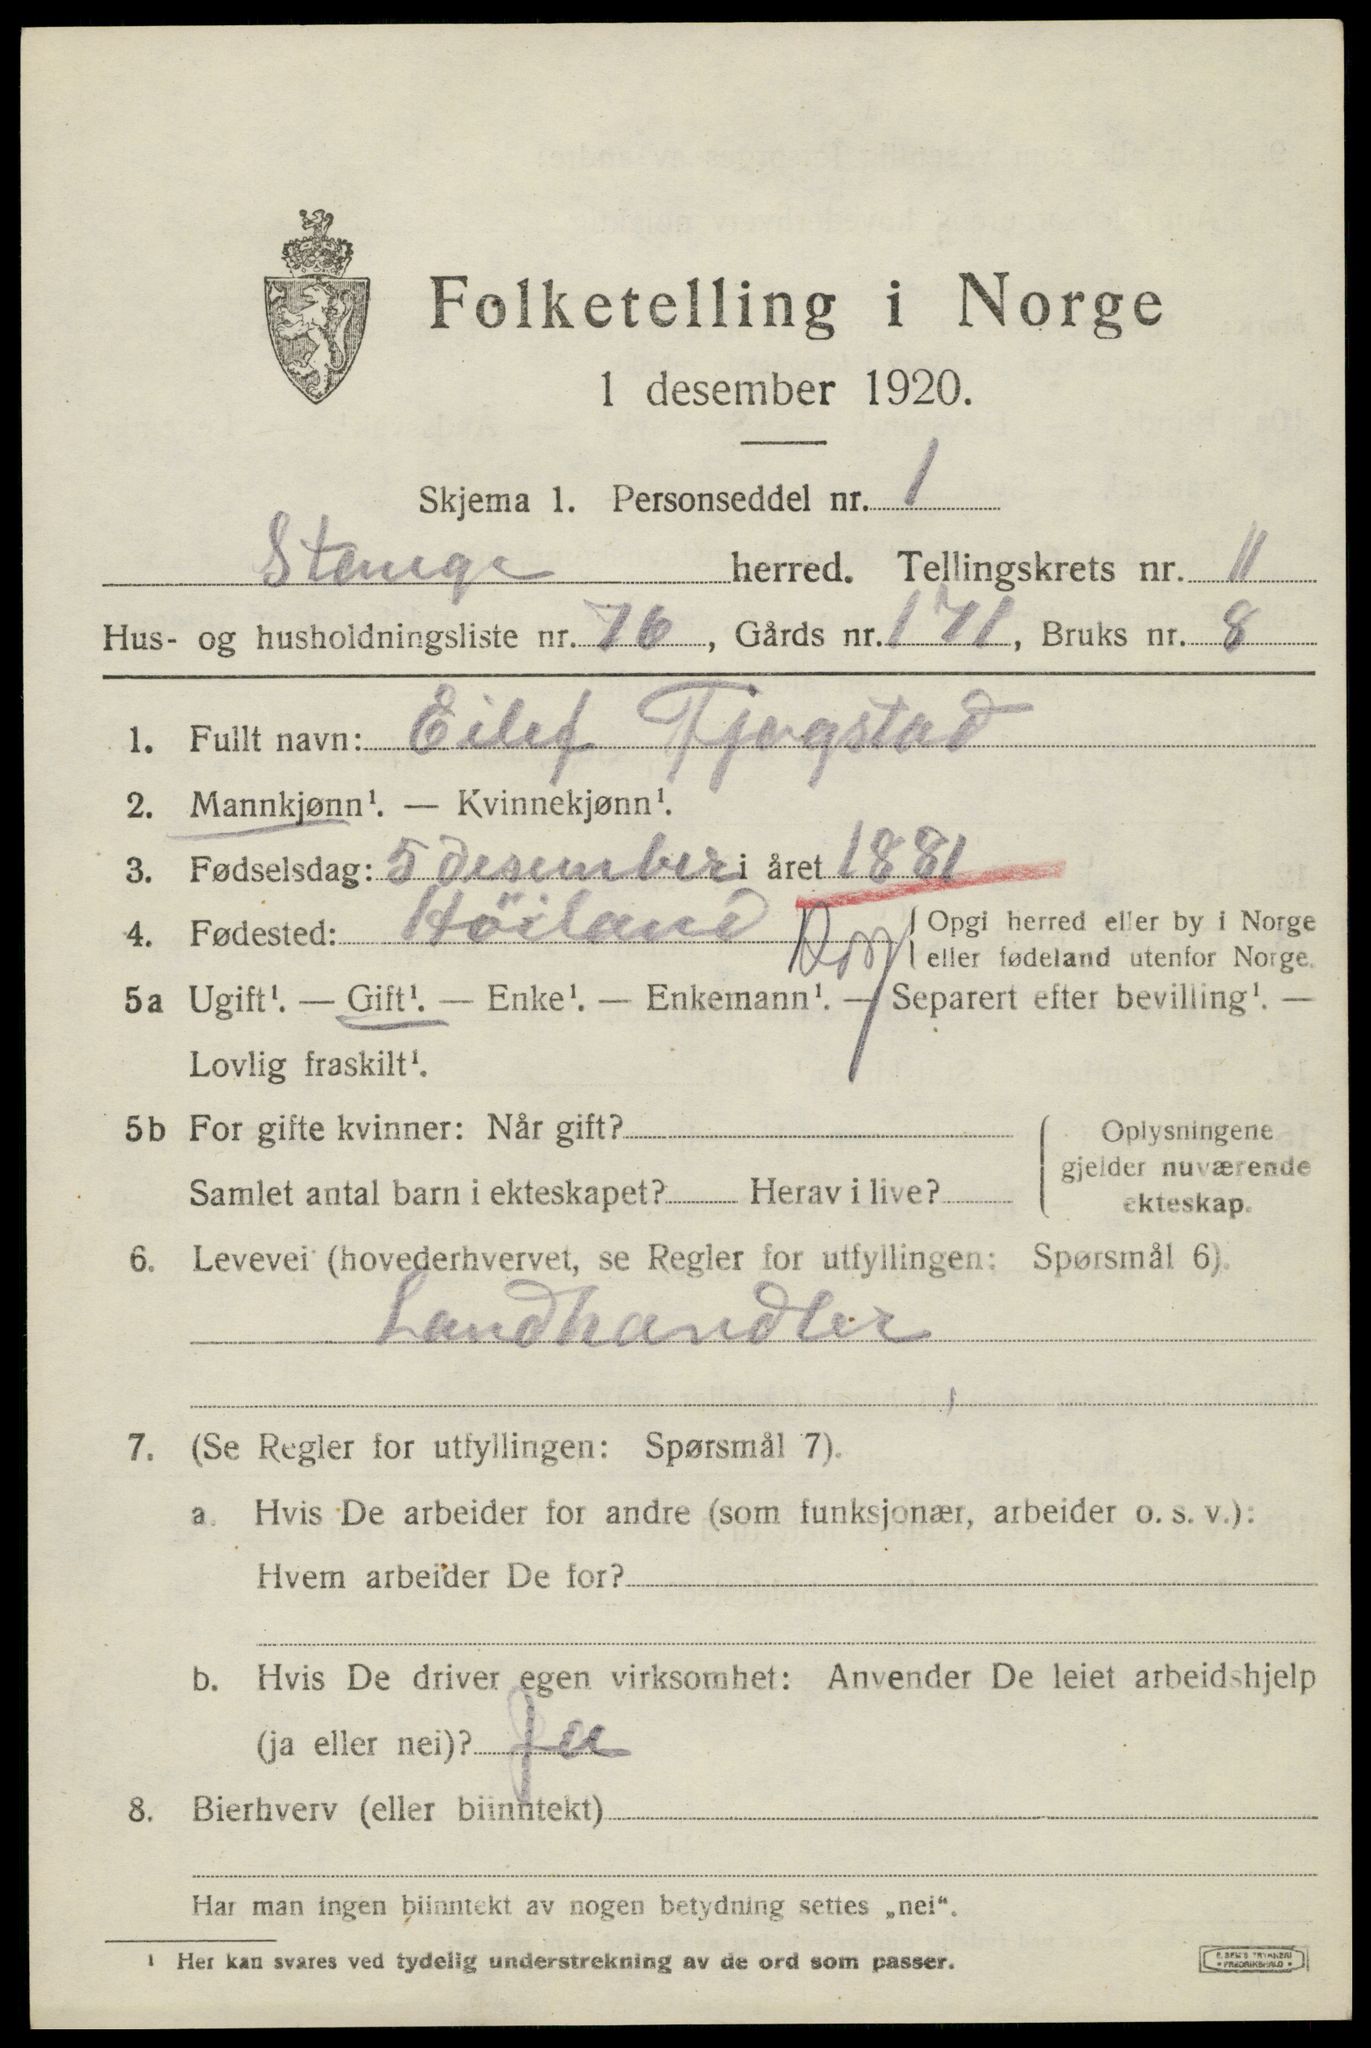 Folketelling i Norge
1 desember 1920.
Skjema 1. Personseddel nr. 1
Stange herred. Tellingskrets nr. 11
Hus- og husholdningsliste nr. 76, Gårds nr. 171, Bruks nr. 8
1. Fullt navn: Eilef Tjogstad
2. Mannkjønn¹. — Kvinnekjønn¹.
3. Fødselsdag: 5 desember i året 1881
4. Fødested: Höiland { Opgi herred eller by i Norge
eller fødeland utenfor Norge.
5a Ugift¹. — Gift¹. — Enke¹. — Enkemann¹. — Separert efter bevilling¹. —
Lovlig fraskilt¹.
5b For gifte kvinner: Når gift? { Oplysningene
gjelder nuværende
Samlet antal barn i ekteskapet? Herav i live?
ekteskap.
6. Levevei (hovederhvervet, se Regler for utfyllingen: Spørsmål 6).
Landhandler
7. (Se Regler for utfyllingen: Spørsmål 7).
a. Hvis De arbeider for andre (som funksjonær, arbeider o. s. v.):
Hvem arbeider De for?
b. Hvis De driver egen virksomhet: Anvender De leiet arbeidshjelp
(ja eller nei)? Ja
8. Bierhverv (eller biinntekt)
Har man ingen biinntekt av nogen betydning settes „nei“.
¹ Her kan svares ved tydelig understrekning av de ord som passer.